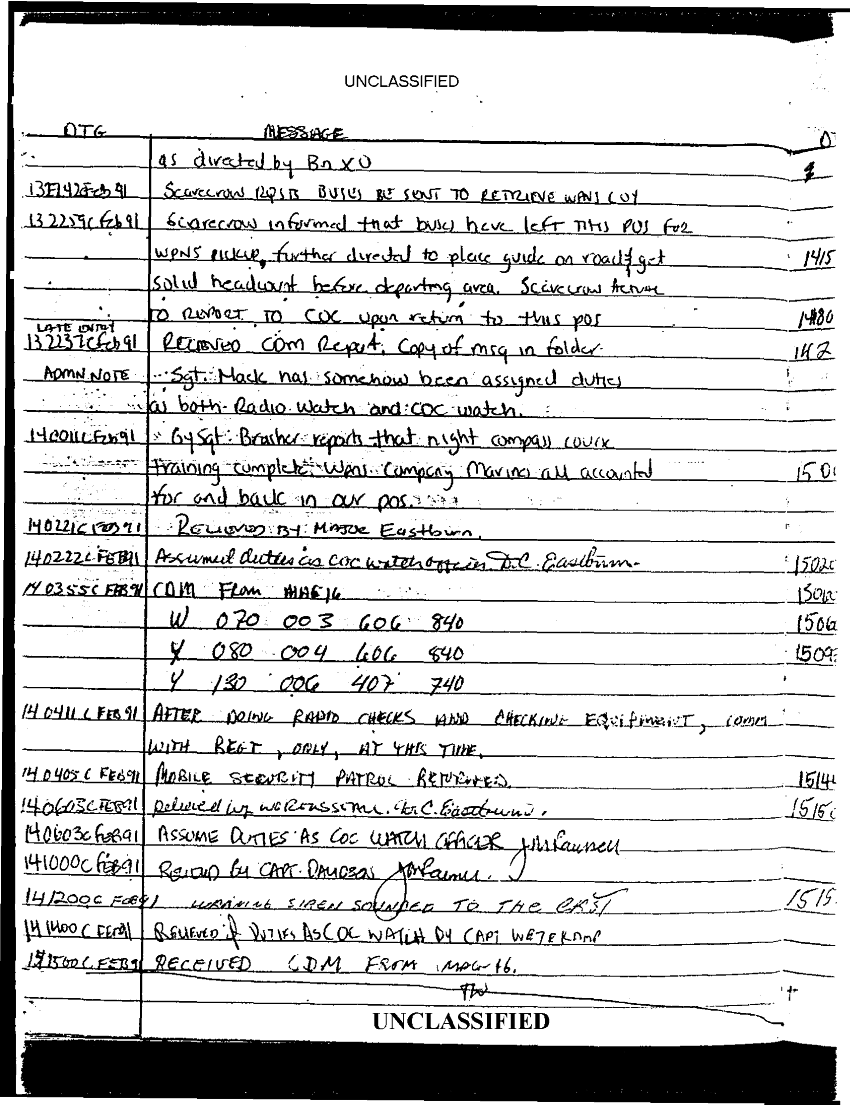 UNCLASSIFIED
DTG MESSAGE
as directed by Bn XO
Scarecrow RQSTS BUSES BE SENT TO RETRIEVE WPNS COY
132259C Feb 91 Scarecrow informed that buses have left THIS POS FOR
WPNS PICKUP, further directed to place guide on road & get 1415
solid headcount before departing area. Scarecrow Actual
TO REPORT TO COC upon return to this pos
LATE ENTRY
132237C Feb 91 RECEIVED CDM Report. Copy of msg in folder.
ADMN NOTE Sgt. Mack has somehow been assigned duties
as both Radio Watch and COC watch.
140011C Feb 91 GySgt Brasher reports that night compass course
training complete. Wpns Company Marines all accounted
for and back in our pos.
140221C FEB 91 RELIEVED BY MAJOR Eastburn.
140222C FEB 91 Assumed duties as COC watch officer D.C. Eastburn
140355C FEB 91 CDM From MAG 16
W 070 003 606 840
X 080 004 606 840
Y 130 006 407 740
140411C FEB 91 AFTER DOING RADIO CHECKS AND CHECKING EQUIPMENT, comm
WITH REGT, ONLY, AT THIS TIME.
140405C FEB 91 MOBILE SECURITY PATROL RETURNED.
140603C FEB 91 Relieved by D.C. Eastburn.
140603C FEB 91 ASSUME DUTIES AS COC WATCH OFFICER
141000C FEB 91 Relieved by CAPT. DAVIDSON
141200C FEB 91 WARNING SIREN SOUNDED TO THE EAST 1515
141400C FEB 91 RELIEVED OF DUTIES AS COC WATCH BY CAPT WETEKAMP
141500C FEB 91 RECEIVED CDM FROM MAG-16.
UNCLASSIFIED